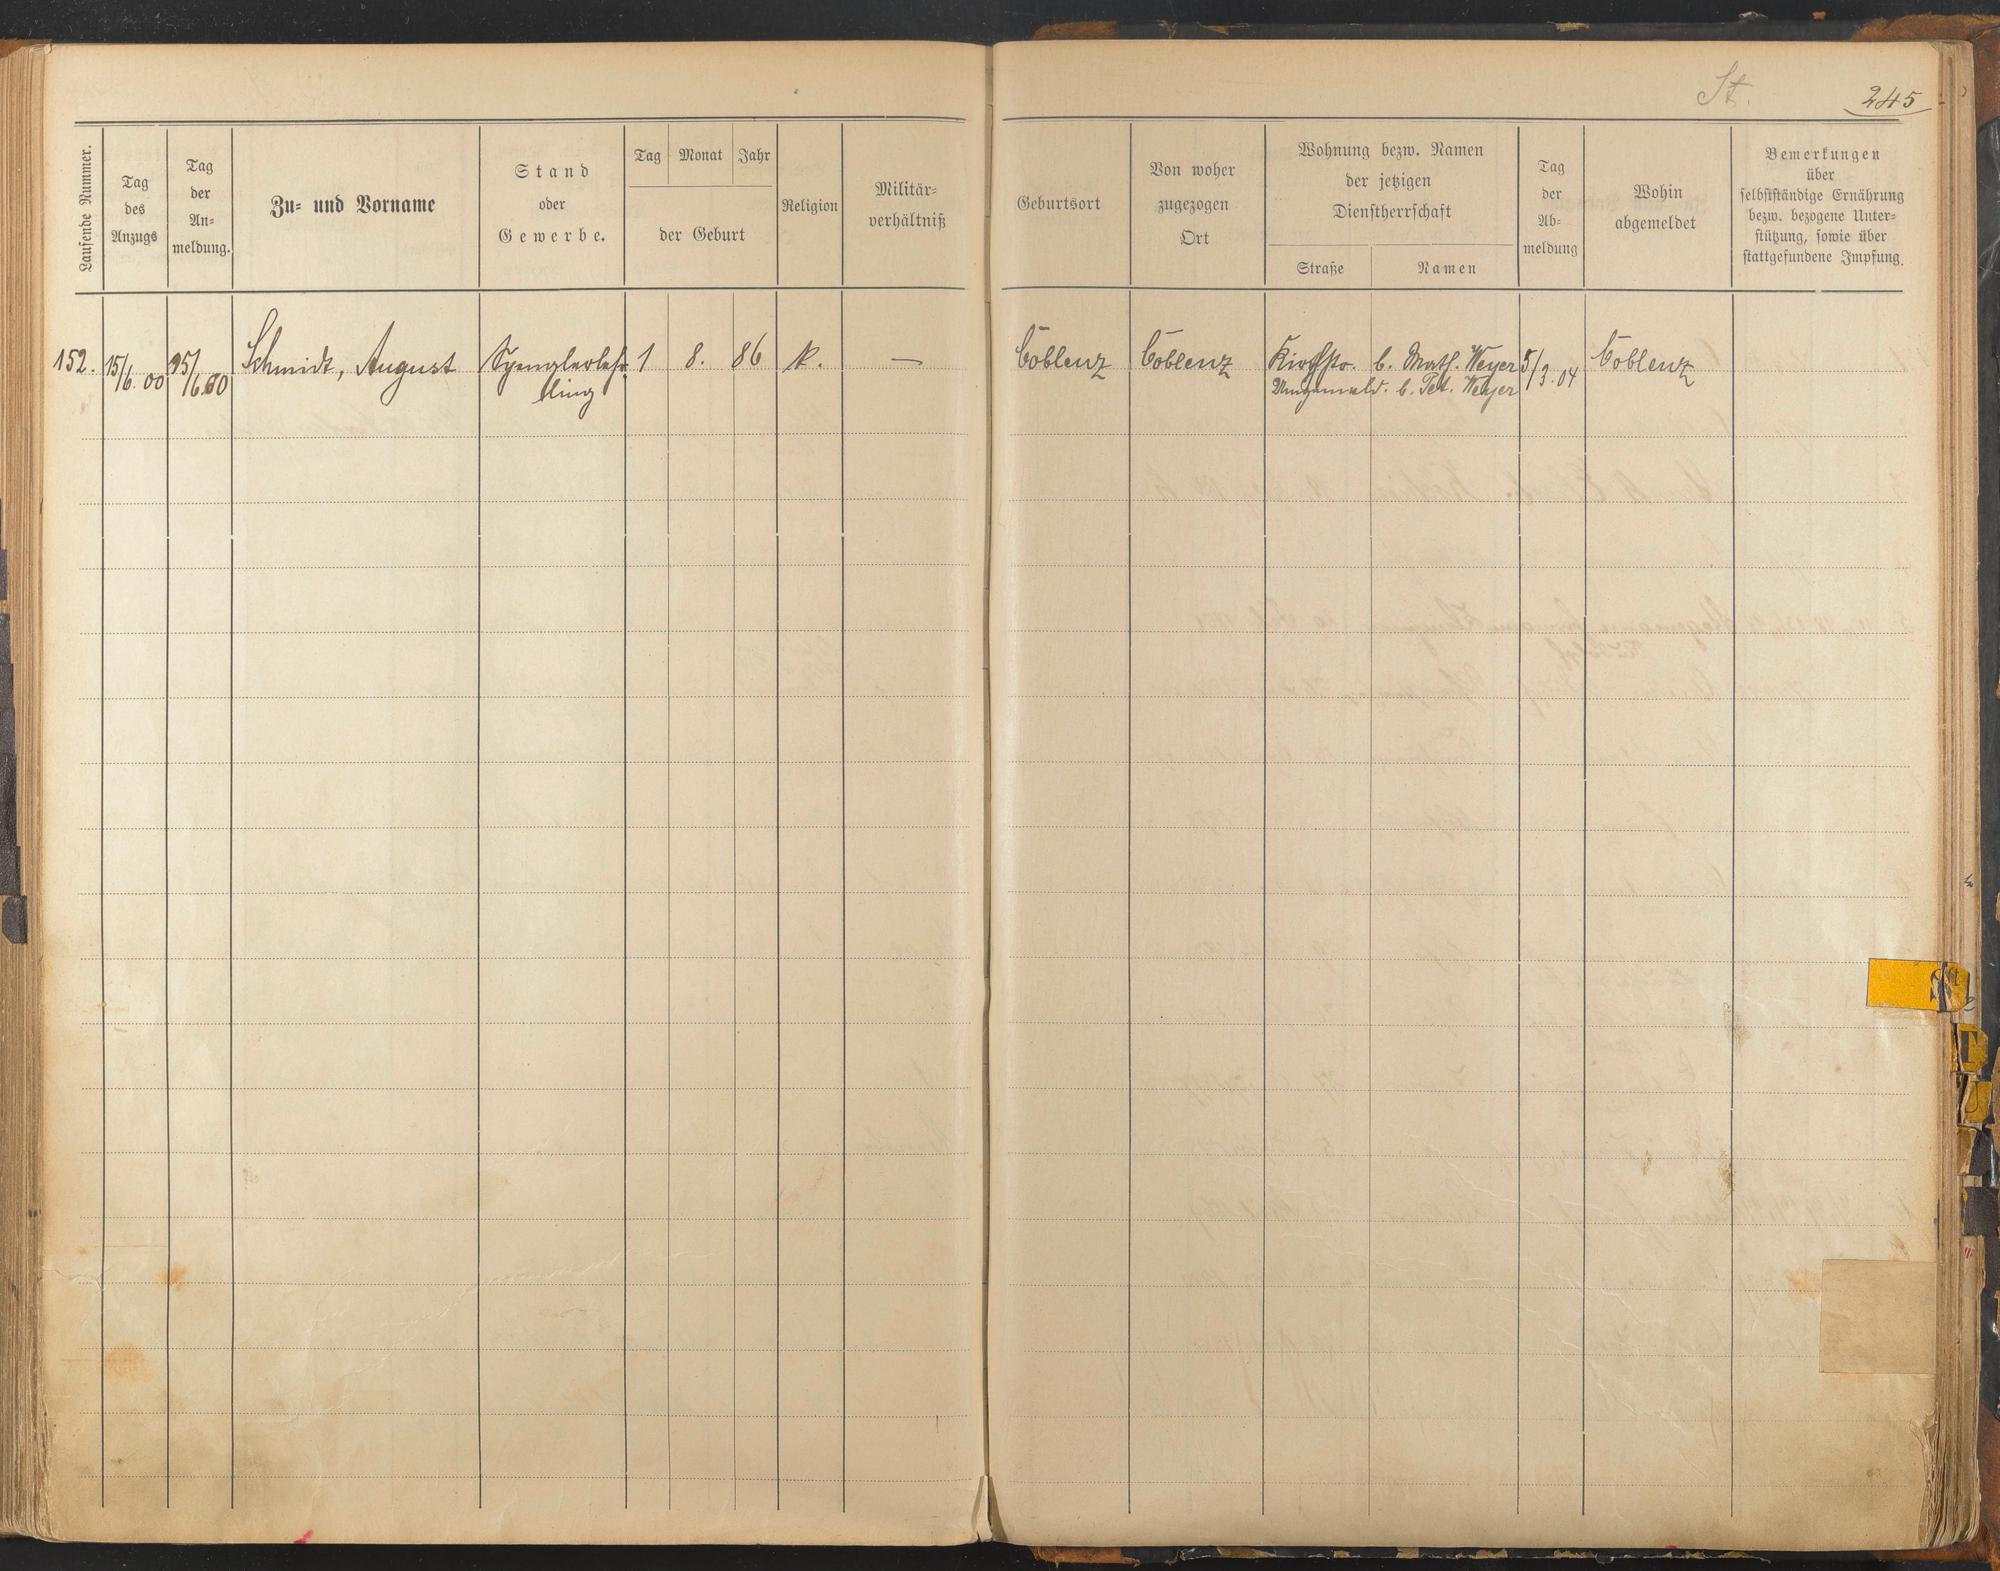 St.
245
Laufende Nummer.
Tag
des
Anzugs
Tag
der
An-
meldung.
Zu- und Vorname
Stand
oder
Gewerbe.
Tag Monat Jahr
der Geburt
Religion
Militär-
verhältniß
Geburtsort
Von woher
zugezogen
Ort
Wohnung bezw. Namen
der jetzigen
Dienstherrschaft
Straße Namen
Tag
der
Ab-
meldung
Wohin
abgemeldet
Bemerkungen
über
selbstständige Ernährung
bezw. bezogene Unter-
stützung, sowie über
stattgefundene Impfung.
152. 15/6.00 25/6.00 Schmidt, August Spenglerlehr- 1 8. 86 k. — Coblenz Coblenz Kirchstr. b. Math. Weyer 5/3.04 Coblenz
ling b. Pet. Weyer
St
T
U